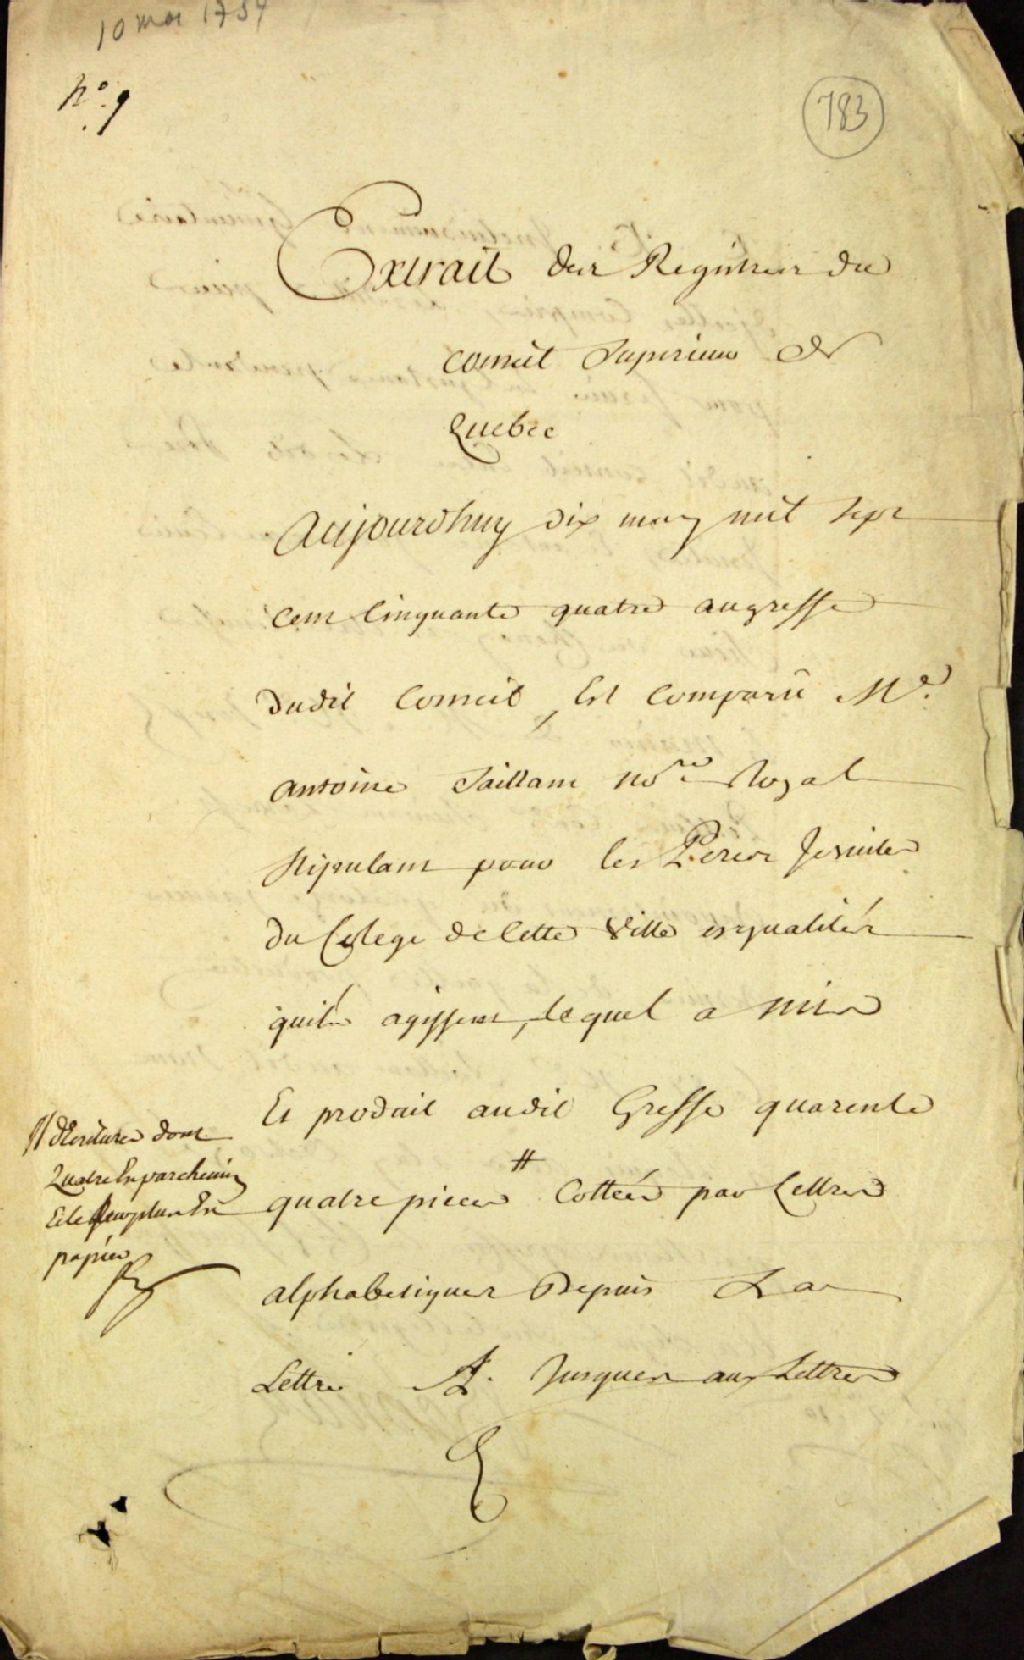 10 mai 1754
N.º 9
783
Extrait des Registres du
conseil Superieur de
Quebec
Aujourdhuy dix may mil sept
cent Cinquante quatre au greffe
dudit Conseil, Est Comparû M.e
Antoine Saillant no.re Royal
stipulant pour les Peres Jesuites
du Colege de cette Ville esqualités
quils agissent, lequel a mis
Et produit audit Greffe quarente
quatre pieces # Cottées par Lettres
alphabetiques Depuis La
Lettre A. Jusques aux Lettres
# dEcritures dont
Quatre En parchemin
Et le surplus En
papier